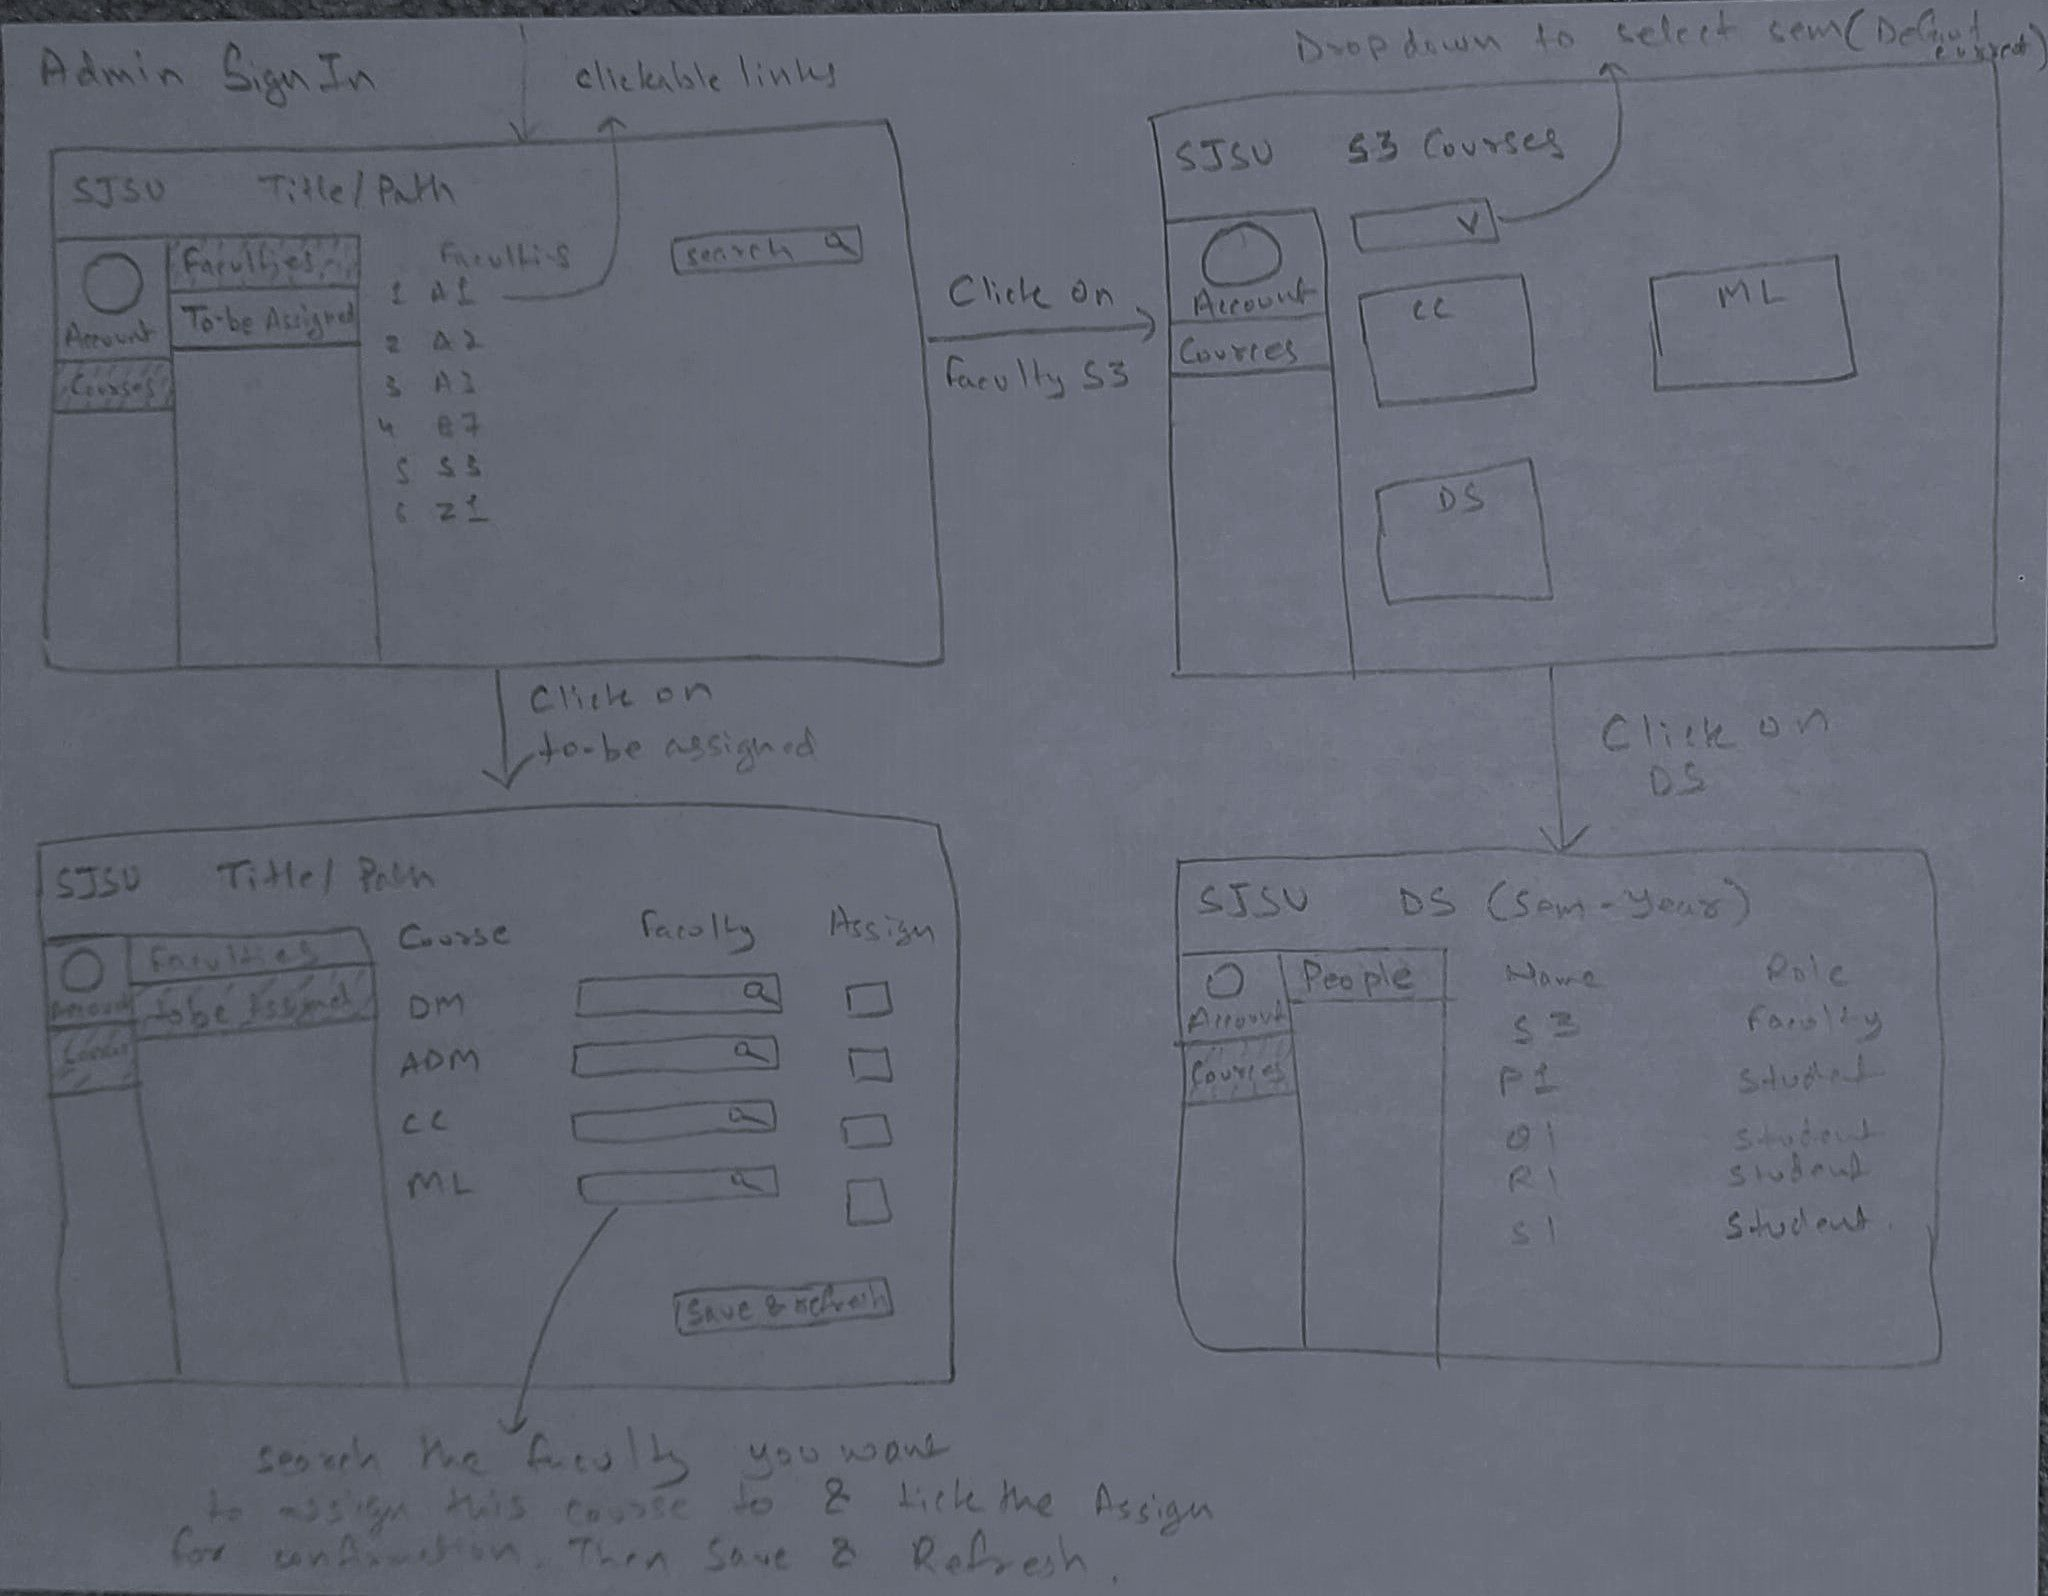 Admin Sign In
clickable links
SJSU Title/Path
Faculties
To-be Assigned
Account
Courses
Faculties
search
1 A1
2 A2
3 A3
4 B7
5 S3
6 Z1
Click on
faculty S3
Dropdown to select sem (Default
current)
SJSU S3 Courses
Account
Courses
CC
ML
DS
Click on
to-be assigned
Click on
DS
SJSU Title/Path
Faculties
To be Assigned
Account
Courses
Course Faculty Assign
DM
ADM
CC
ML
Save & refresh
search the faculty you want
to assign this course to & tick the Assign
for confirmation. Then Save & Refresh.
SJSU DS (Sem-Year)
People
Account
Courses
Name Role
S3 Faculty
P1 Student
Q1 Student
R1 Student
S1 Student